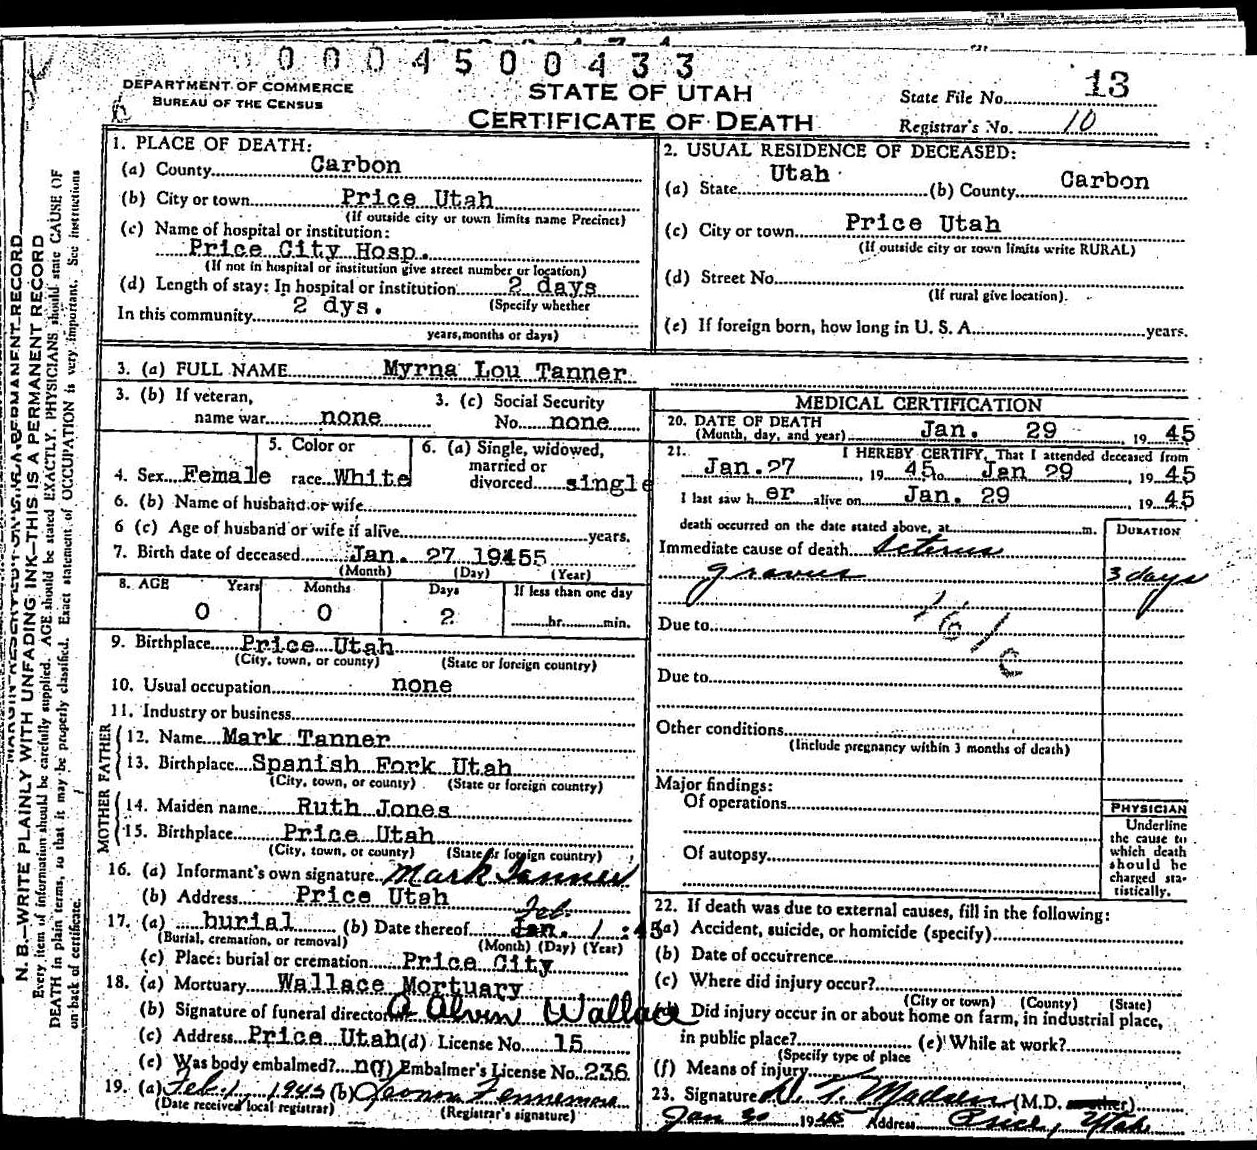 0004500433
DEPARTMENT OF COMMERCE
BUREAU OF THE CENSUS
STATE OF UTAH
CERTIFICATE OF DEATH
State File No. 13
Registrar's No. 10
1. PLACE OF DEATH:
(a) County Carbon
(b) City or town Price Utah
(If outside city or town limits name Precinct)
(c) Name of hospital or institution:
Price City Hosp.
(If not in hospital or institution give street number or location)
(d) Length of stay: In hospital or institution 2 days
(Specify whether
In this community 2 dys.
years, months or days)
2. USUAL RESIDENCE OF DECEASED:
(a) State Utah (b) County Carbon
(c) City or town Price Utah
(If outside city or town limits write RURAL)
(d) Street No.
(If rural give location).
(e) If foreign born, how long in U. S. A. years.
3. (a) FULL NAME Myrna Lou Tanner
3. (b) If veteran,
name war none
3. (c) Social Security
No. none
4. Sex Female
5. Color or
race White
6. (a) Single, widowed,
married or
divorced single
6. (b) Name of husband or wife
6 (c) Age of husband or wife if alive years.
7. Birth date of deceased Jan. 27 19455
(Month) (Day) (Year)
8. AGE Years Months Days If less than one day
0 0 2 hr. min.
9. Birthplace Price Utah
(City, town, or county) (State or foreign country)
10. Usual occupation none
11. Industry or business
FATHER
12. Name Mark Tanner
13. Birthplace Spanish Fork Utah
(City, town, or county) (State or foreign country)
MOTHER
14. Maiden name Ruth Jones
15. Birthplace Price Utah
(City, town, or county) (State or foreign country)
16. (a) Informant's own signature Mark Tanner
(b) Address Price Utah
17. (a) burial (b) Date thereof Feb. Jan. 1 :45
(Burial, cremation, or removal) (Month) (Day) (Year)
(c) Place: burial or cremation Price City
18. (a) Mortuary Wallace Mortuary
(b) Signature of funeral director A Alvin Wallace
(c) Address Price Utah (d) License No. 15
(e) Was body embalmed? no (f) Embalmer's License No. 236
19. (a) Feb. 1, 1945 (b) Leonora Fennemore
(Date received local registrar) (Registrar's signature)
MEDICAL CERTIFICATION
20. DATE OF DEATH
(Month, day, and year) Jan. 29, 19 45
21. I HEREBY CERTIFY, That I attended deceased from
Jan. 27, 19 45 to Jan 29, 19 45
I last saw h er alive on Jan. 29, 19 45
death occurred on the date stated above, at m.
DURATION
Immediate cause of death Icterus
gravus 3 days
Due to
161 c
Due to
Other conditions
(Include pregnancy within 3 months of death)
Major findings:
Of operations
Of autopsy
PHYSICIAN
Underline
the cause to
which death
should be
charged sta-
tistically.
22. If death was due to external causes, fill in the following:
(a) Accident, suicide, or homicide (specify)
(b) Date of occurrence
(c) Where did injury occur?
(City or town) (County) (State)
Did injury occur in or about home on farm, in industrial place,
in public place? (e) While at work?
(Specify type of place
(f) Means of injury
23. Signature (M.D.
Madsen
Jan 30 1945 Address Price, Utah
N. B.—WRITE PLAINLY WITH UNFADING INK—THIS IS A PERMANENT RECORD
Every item of information should be carefully supplied. AGE should be stated EXACTLY. PHYSICIANS should state CAUSE OF
DEATH in plain terms, so that it may be properly classified. Exact statement of OCCUPATION is very important. See instructions
on back of certificate.